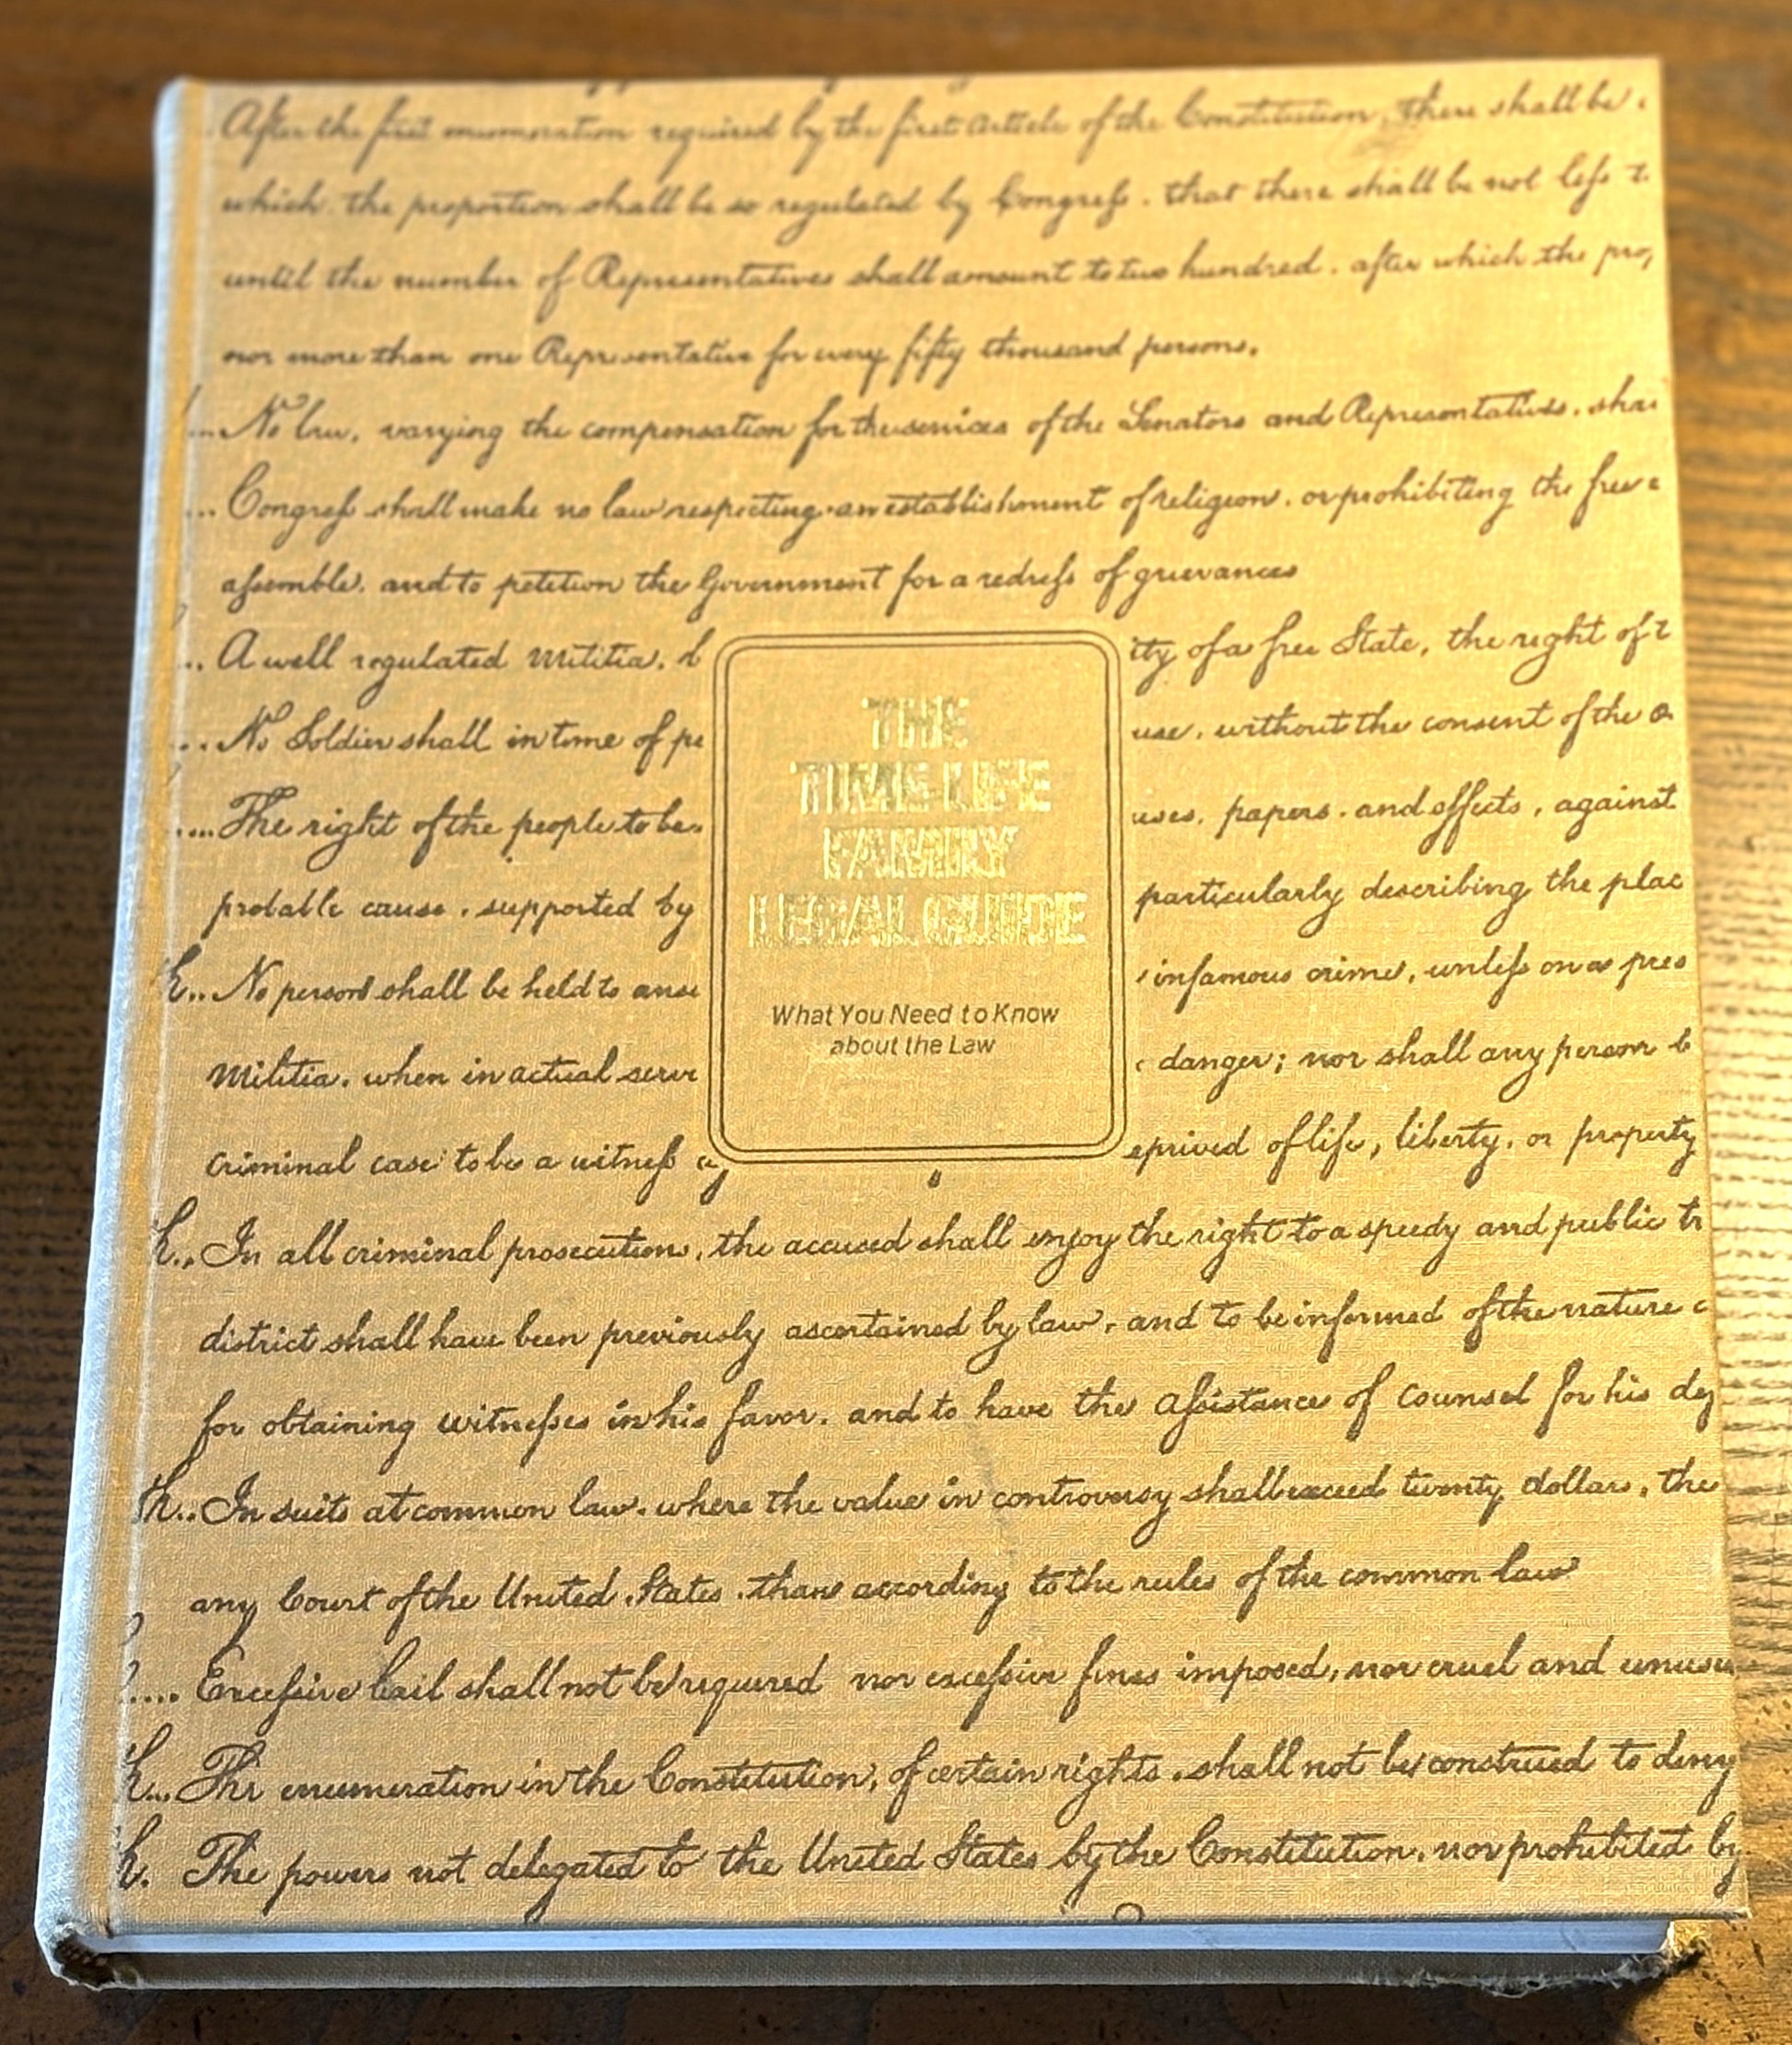 After the first enumeration required by the first Article of the Constitution, there shall be
which the proportion shall be so regulated by Congress, that there shall be not less
until the number of Representatives shall amount to two hundred, after which the pro
nor more than one Representative for every fifty thousand persons.
...No law, varying the compensation for the services of the Senators and Representatives, shal
...Congress shall make no law respecting an establishment of religion, or prohibiting the free e
assemble, and to petition the Government for a redress of grievances
...A well regulated Militia, b ity of a free State, the right of t
...No Soldier shall in time of pe use, without the consent of the O
....The right of the people to be uses, papers, and effects, against
probable cause, supported by particularly describing the plac
h...No person shall be held to answ infamous crime, unless on a pres
Militia, when in actual serv danger; nor shall any person b
criminal case to be a witness ag eprived of life, liberty, or property
h...In all criminal prosecutions, the accused shall enjoy the right to a speedy and public tr
district shall have been previously ascertained by law, and to be informed of the nature
for obtaining witnesses in his favor, and to have the Assistance of Counsel for his de
th...In suits at common law, where the value in controversy shall exceed twenty dollars, the
any Court of the United States, than according to the rules of the common law
....Excessive bail shall not be required nor excessive fines imposed, nor cruel and unusu
h...The enumeration in the Constitution, of certain rights, shall not be construed to deny
h. The powers not delegated to the United States by the Constitution, nor prohibited by
THE
TIME-LIFE
FAMILY
LEGAL GUIDE
What You Need to Know
about the Law